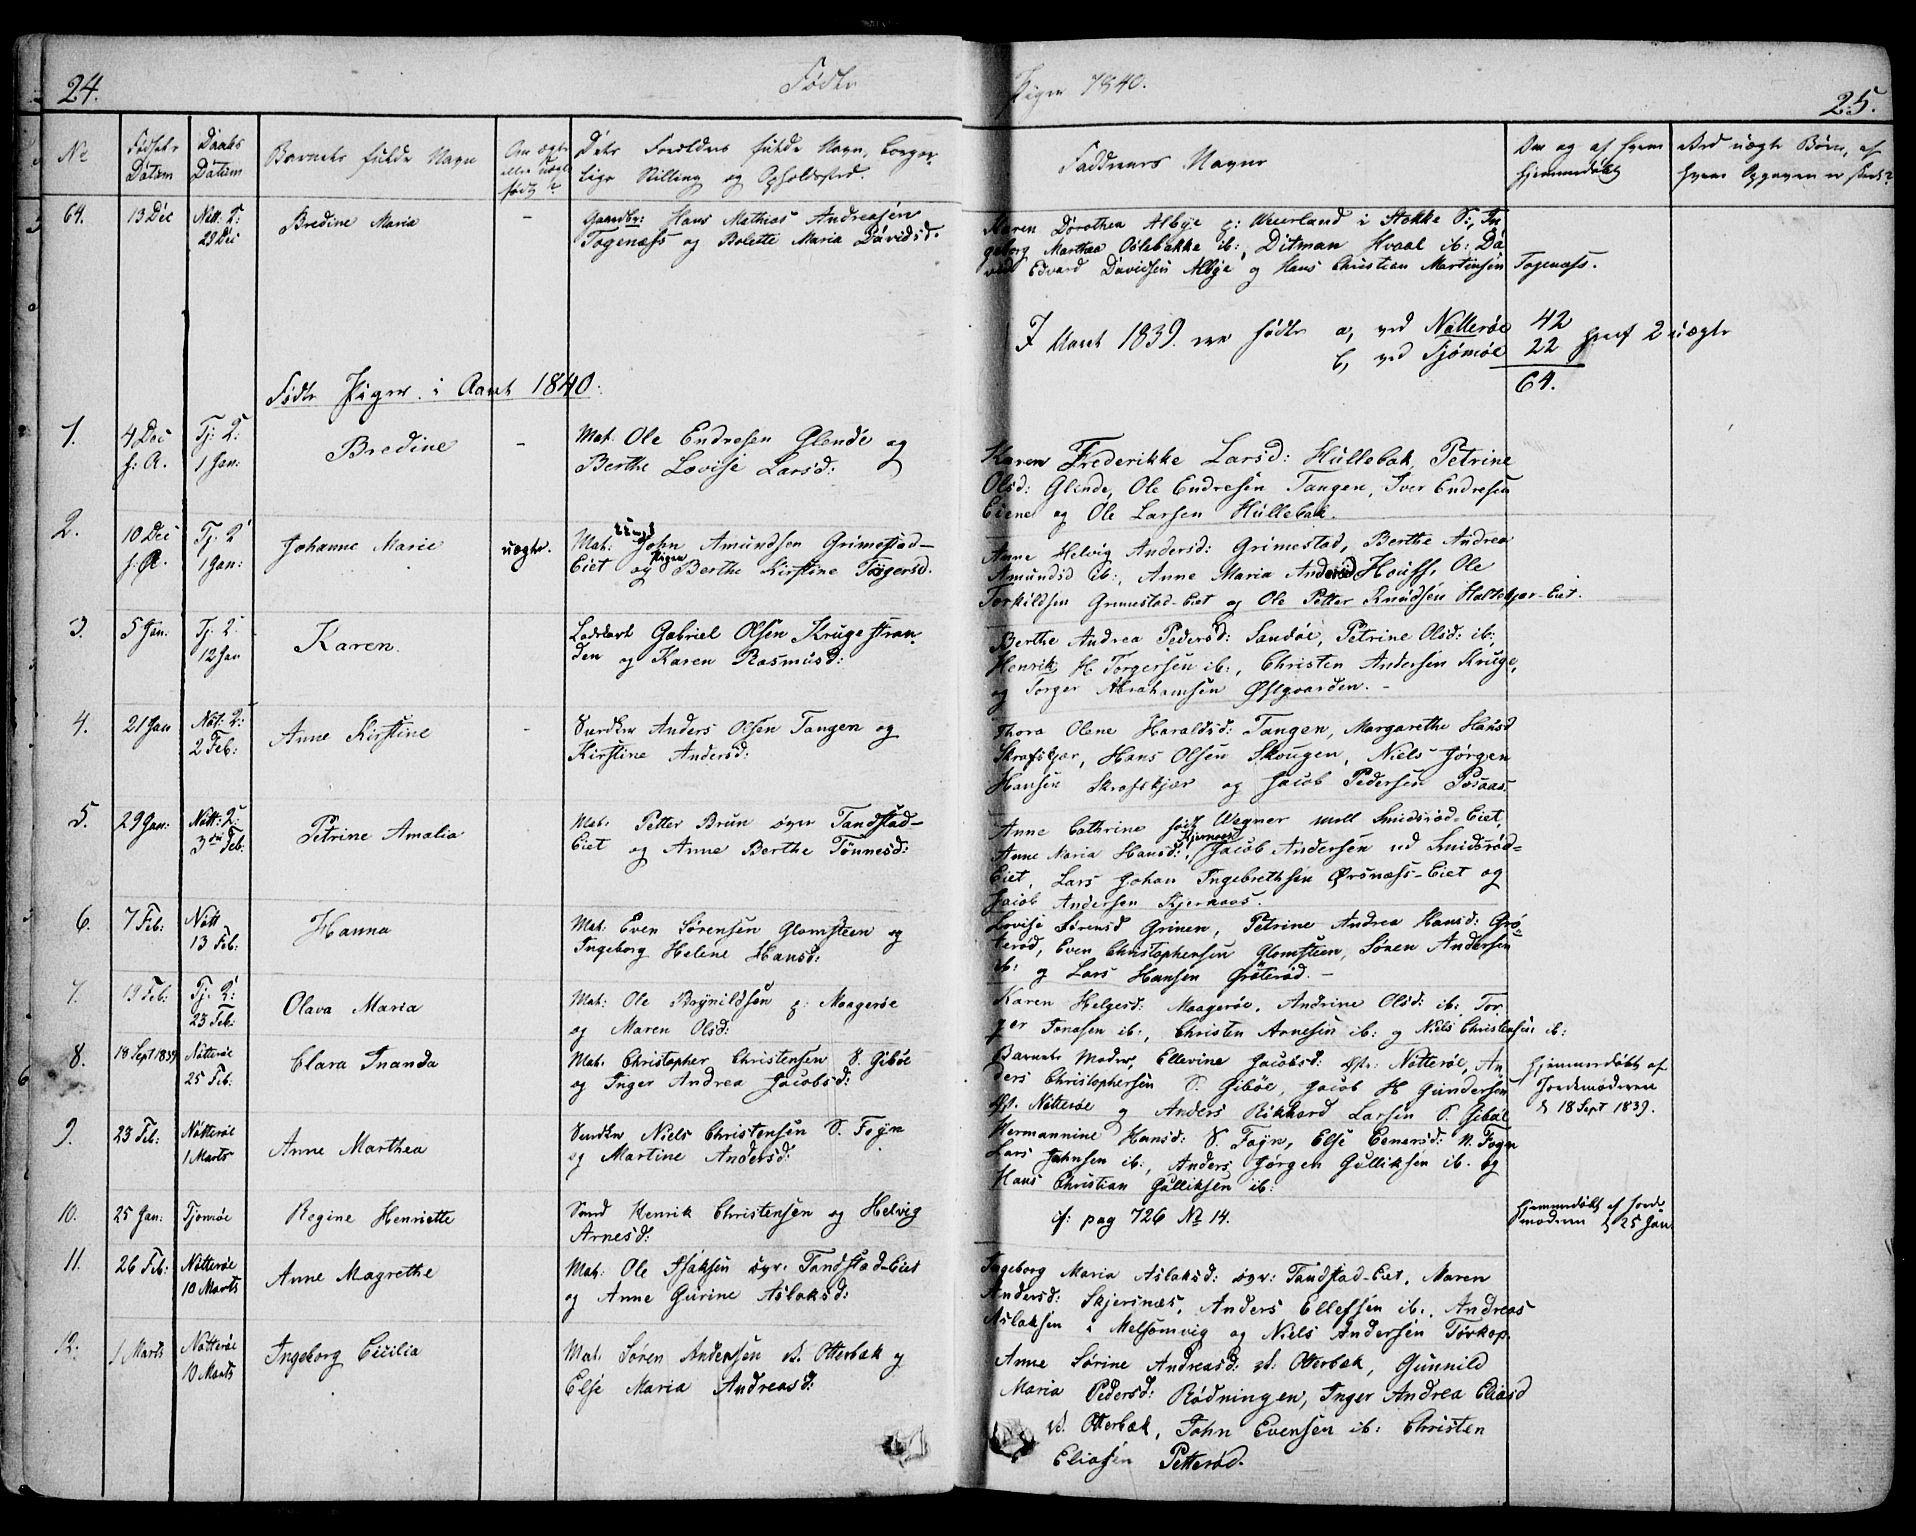 24.
Fødte
Piger 1840.
25.
No
Fødsels
Datum
Daabs
Datum
Barnets fulde Navn
Om ægte
eller uægte
født
Dets Forældres fulde Navn, borger
lige Stilling og Opholdsted.
Faddrenes Navne
Om og af hvem
hjemmedøbt
Ved uægte Børn, af
hvem Opgaven er skeet?
64.
13 Dec
Nøtt: K:
29 Dec
Bredine Maria
-
Gaardbr: Hans Mathias Andreasen
Togenæss og Bolette Maria Davidsd.
Maren Dorothea Albye p: Weierland i Stokke S:, In
geborg Marthea Oslebakke ib:, Ditman Hvaal ib: Da
vid Edvard Davidsen Albye og Hans Christian Martinsen
Togenæss.
I Aaret 1839 ere fødte a, ved Nøtterøe 42
b, ved Tjømøe 22 hvoraf 2 uægte
64.
Fødte Piger i Aaret 1840.
1.
4 Dec
f: A.
Tj: K:
1 Jan:
Bredine
-
Mat: Ole Endresen Glende og
Berthe Lovise Larsd:
Karen Frederikke Larsd: Hullebak, Petrine
Olsd: Glende, Ole Endresen Tangen, Iver Endresen
Eiene og Ole Larsen Hullebak.
2.
10 Dec
f: A.
Tj: K
1 Jan:
Johanne Marie
uægte.
Mat: Ungk John Amundsen Grimestad-
Eiet og Pigen Berthe Kirstine Torgersd.
Anne Helvig Andersd: Grimestad, Berthe Andrea
Amundsd ib:, Anne Maria Andersd Houff, Ole
Torkildsen Grimestad-Eiet og Ole Petter Knudsen Holtekjær-Eiet.
3.
5 Jan.
Tj: K:
12 Jan
Karen.
Loddert Gabriel Olsen Krugestran
den og Karen Rasmusd:
Berthe Andrea Pedersd: Sandøe, Petrine Olsd: ib:
Henrik H. Torgersen ib:, Christen Andersen Kruge,
og Torger Abrahamsen Østgaarden. -
4.
21 Jan
Nøt: K:
2 Feb:
Anne Kirstine
-
Anders Olsen Tangen og
Kirstine Andersd:
Thora Olene Haraldsd: Tangen, Margarethe Hansd
Skrafskjær, Hans Olsen Skougen, Niels Jørgen
Hansen Skrafskjær og Jacob Pedersen
5.
29 Jan:
Nøtt: K:
3die Feb.
Petrine Amalia
Mat: Petter Brun øvr Tandstad-
Eiet og Anne Berthe Tønnesd:
Anne Cathrine født Wegner mell Smidsrød-Eiet,
Anne Maria Hansd: Kjernaas, Jacob Andersen nd Smidsrød-
Eiet, Lars Johan Ingebrethsen Ørsnæss-Eiet og
Jacob Andersen Skjernaas.
6.
7 Feb:
Nøtt
13 Feb:
Hanna
Mat: Even Sørensen Glomsteen og
Ingeborg Helene Hansd:
Lovise Sørensd Grinen, Petrine Andrea Hansd: Grø-
terød, Even Christophersen Glomsteen, Søren Andersen
ib: og Lars Hansen Grøterød. -
7.
19 Feb:
Tj: K:
23 Feb:
Olava Maria
Mat: Ole Brynildsen p: Maagerøe
og Maren Olsd:
Karen Helgesd: Maagerøe, Andrine Olsd: ib: Tor
ger Jonasen ib:, Christen Arnesen ib: og Niels Christensen ib:
8.
18 Sept 1839
Nøtterøe
25 Feb:
Clara Inanda
Mat: Christopher Christensen S. Gibøe
og Inger Andrea Jacobsd:
Barnets Moder, Ellevine Jacobsd: Øst: Nøtterøe, An
ders Christophersen S. Gibøe, Jacob H Gundersen
Øst. Nøtterøe og Anders Rikkard Larsen S. Gibøe
Hjemmedøbt af
Jordemoderen
d 18 Sept 1839.
9.
23 Feb:
Nøtterøe
1 Marts
Anne Marthea
Niels Christensen S. Foÿn
og Martine Andersd:
Hermannine Hansd: S. Foÿn, Else Eenersd: N. Foÿn
Lars Johnsen ib:, Anders Jørgen Gulliksen ib. og
Hans Christian Gulliksen ib:
10.
25 Jan:
Tjømøe
Regine Henriette
Henrik Christensen og Helvig
Arnesd:
cf: pag 726 No 14.
Hjemmedøbt af Jorde
moderen d 25 Jan
11.
26 Feb:
Nøtterøe
10 Marts
Anne Magrethe
Mat: Ole Isaksen øvr: Tandstad-Eiet
og Anne Gurine Aslaksd:
Ingeborg Maria Aslaksd: øvr: Tandstad-Eiet, Maren
Andersd: Skjersnæs, Anders Ellefsen ib:, Andreas
Aslaksen i Melsomvig og Niels Andersen Torkop.
12.
1 Marts
Nøtterøe
10 Marts
Ingeborg Cecilia
Mat: Søren Andersen v. Otterbæk og
Else Maria Andreasd:
Anne Sørine Andreasd: v. Otterbæk, Gunnild
Maria Pedersd: Rødningen, Inger Andrea Eliasd
v. Otterbæk, John Evensen ib: Christen
Eliasen Petterød.